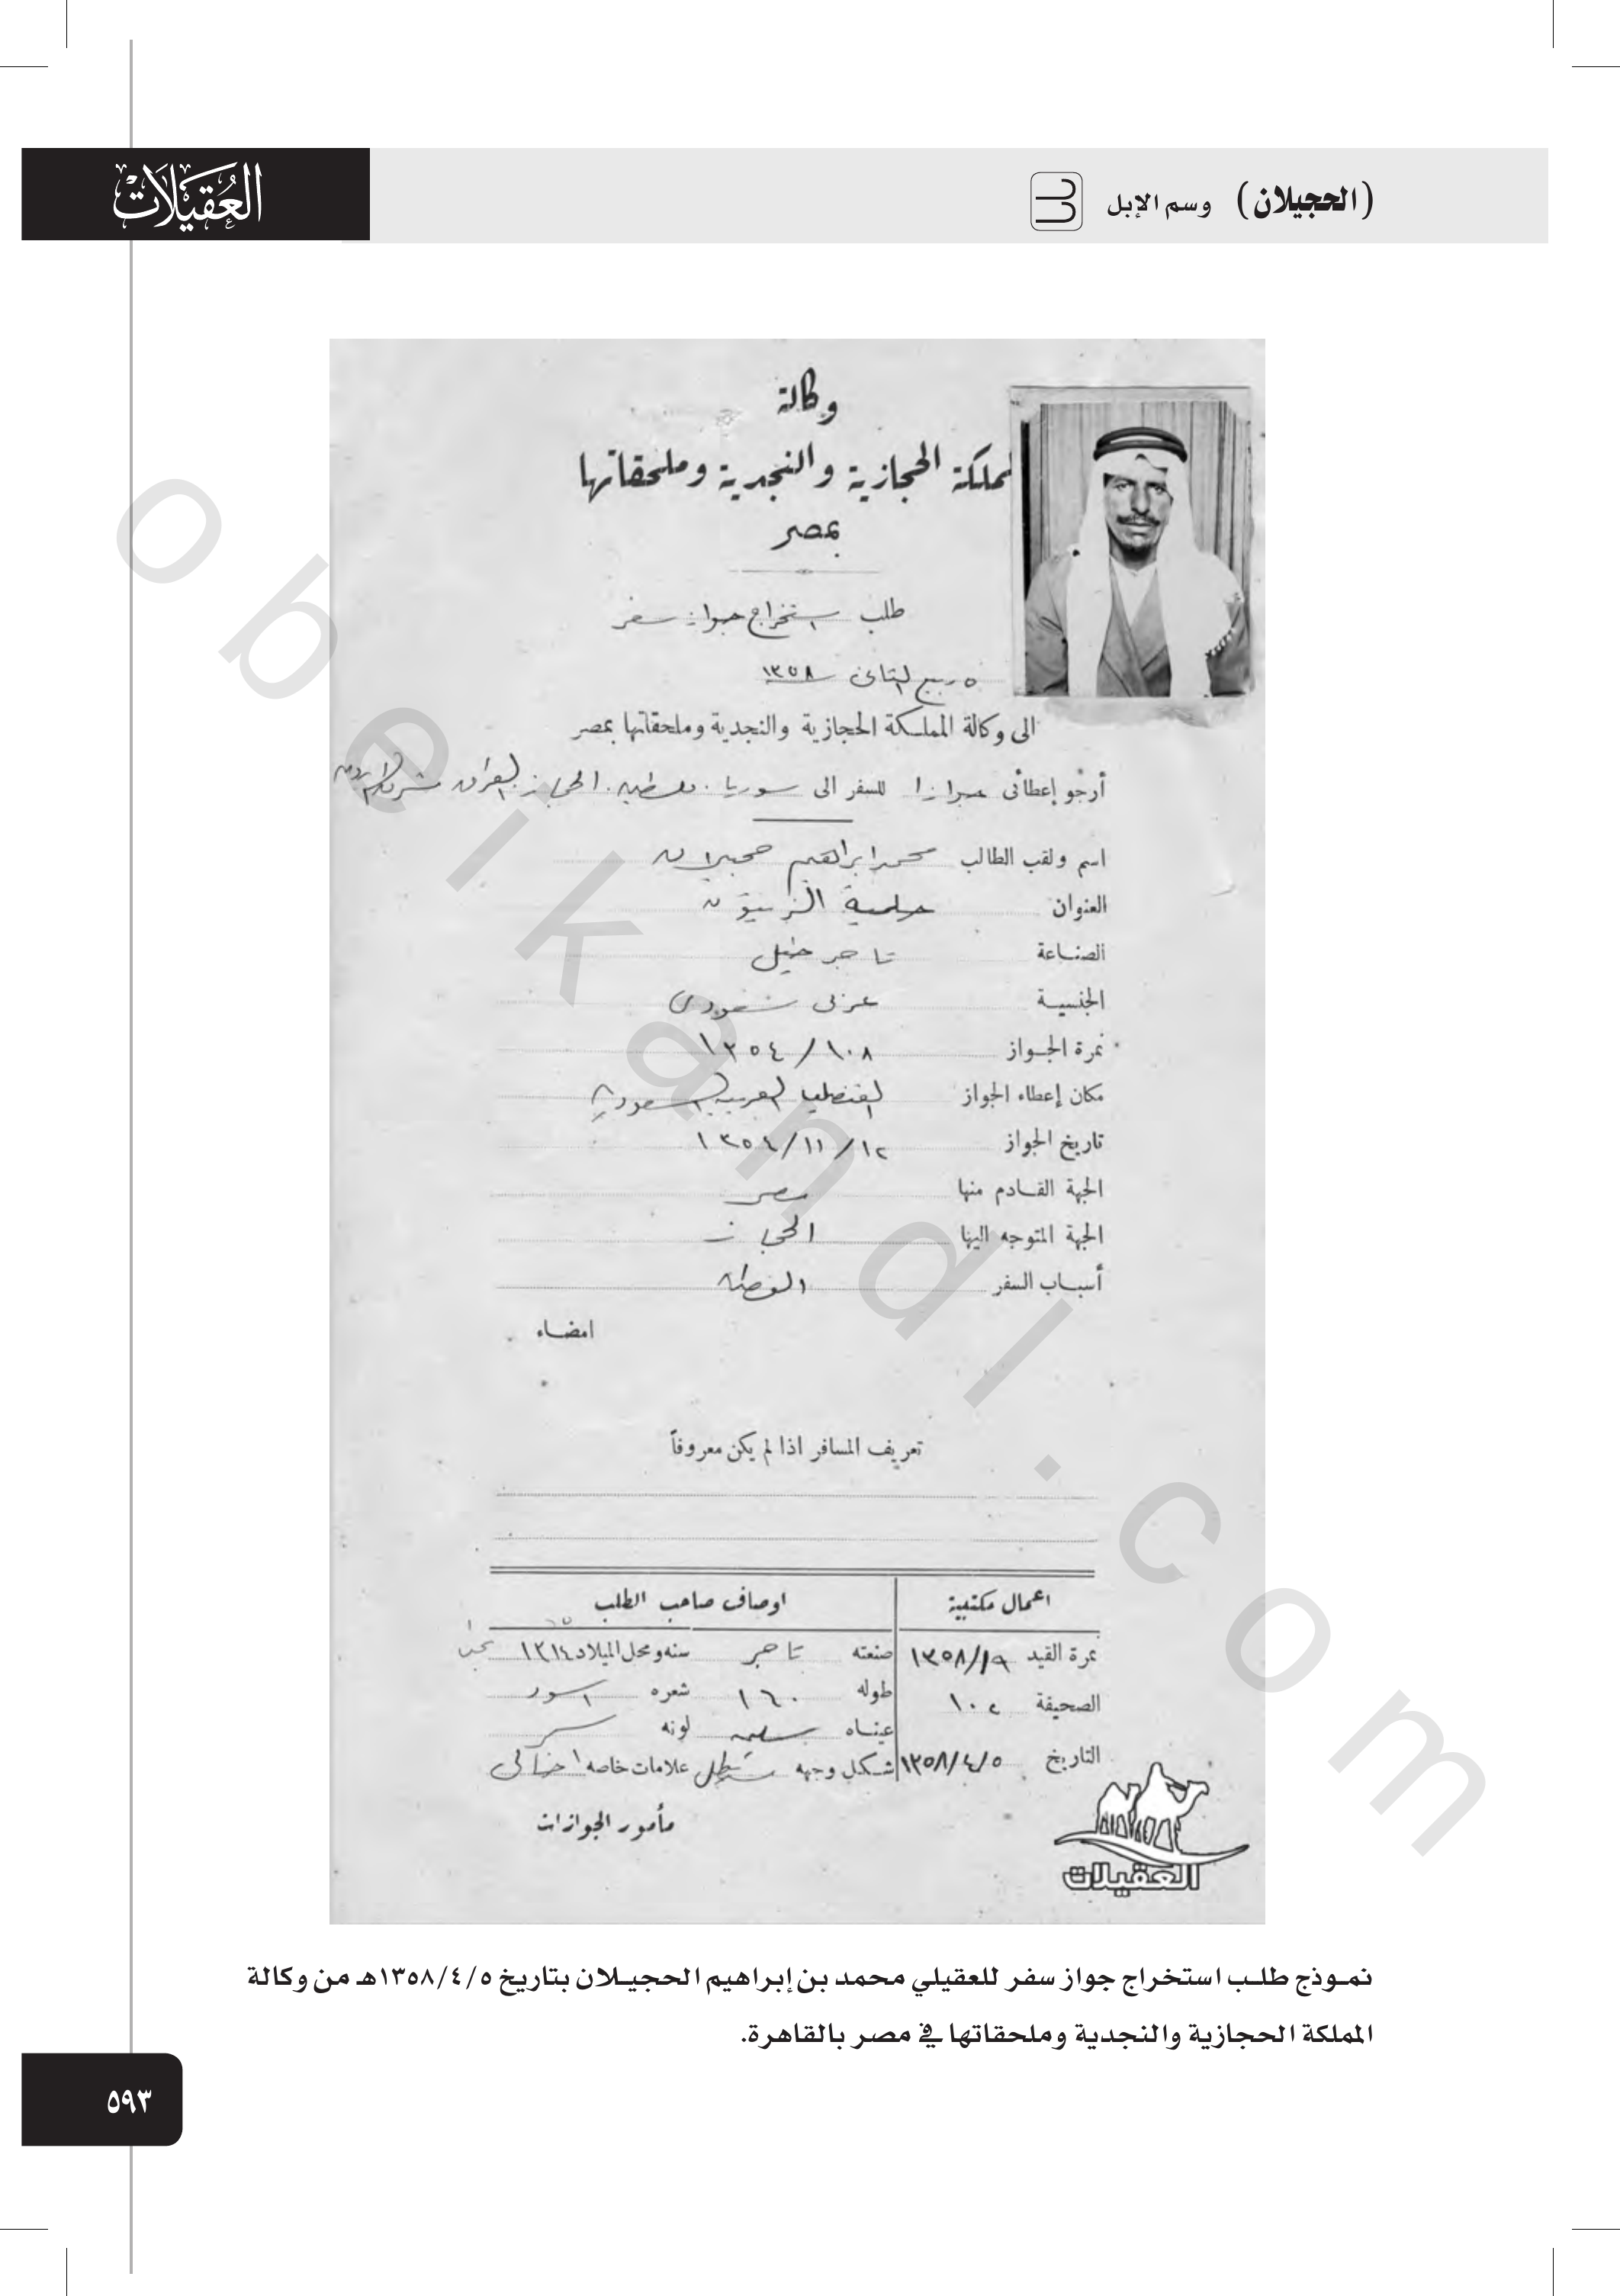 العقيلات
(الحجيلان) وسم الإبل
وكالة
لمملكة الحجازية والنجدية وملحقاتها
بمصر
طلب استخراج جواز سفر
٥ ربيع الثاني سنة ١٣٥٨
الى وكالة المملكة الحجازية والنجدية وملحقاتها بمصر
أرجو إعطائى جوازا للسفر الى سوريا . فلسطين . الحجاز العراق شرق الاردن
اسم ولقب الطالب محمد ابراهيم حجيلان
العنوان حلمية الزيتون
الصناعة تاجر خيل
الجنسية عربى سعودى
نمرة الجواز ١٠٨ / ١٣٥٤
مكان إعطاء الجواز القنصليه العربيه السعوديه
تاريخ الجواز ١٢ / ١١ / ١٣٥٤
الجهة القادم منها مصر
الجهة المتوجه اليها الحجاز
أسباب السفر
امضاء
تعريف المسافر اذا لم يكن معروفاً
اعمال مكتبية
اوصاف صاحب الطلب
نمرة القيد ١٩/١٣٥٨ صنعته تاجر سنه ومحل الميلاد ١٣١٤
الصحيفة ١٠٢ طوله ١٦٠ شعره اسود
عيناه لونه
التاريخ ١٣٥٨/٤/٥ شكل وجهه مستطيل علامات خاصه
مأمور الجوازات
العقيلات
نموذج طلب استخراج جواز سفر للعقيلي محمد بن إبراهيم الحجيلان بتاريخ ١٣٥٨/٤/٥هـ من وكالة
المملكة الحجازية والنجدية وملحقاتها في مصر بالقاهرة.
٥٩٣
obeikandl.com